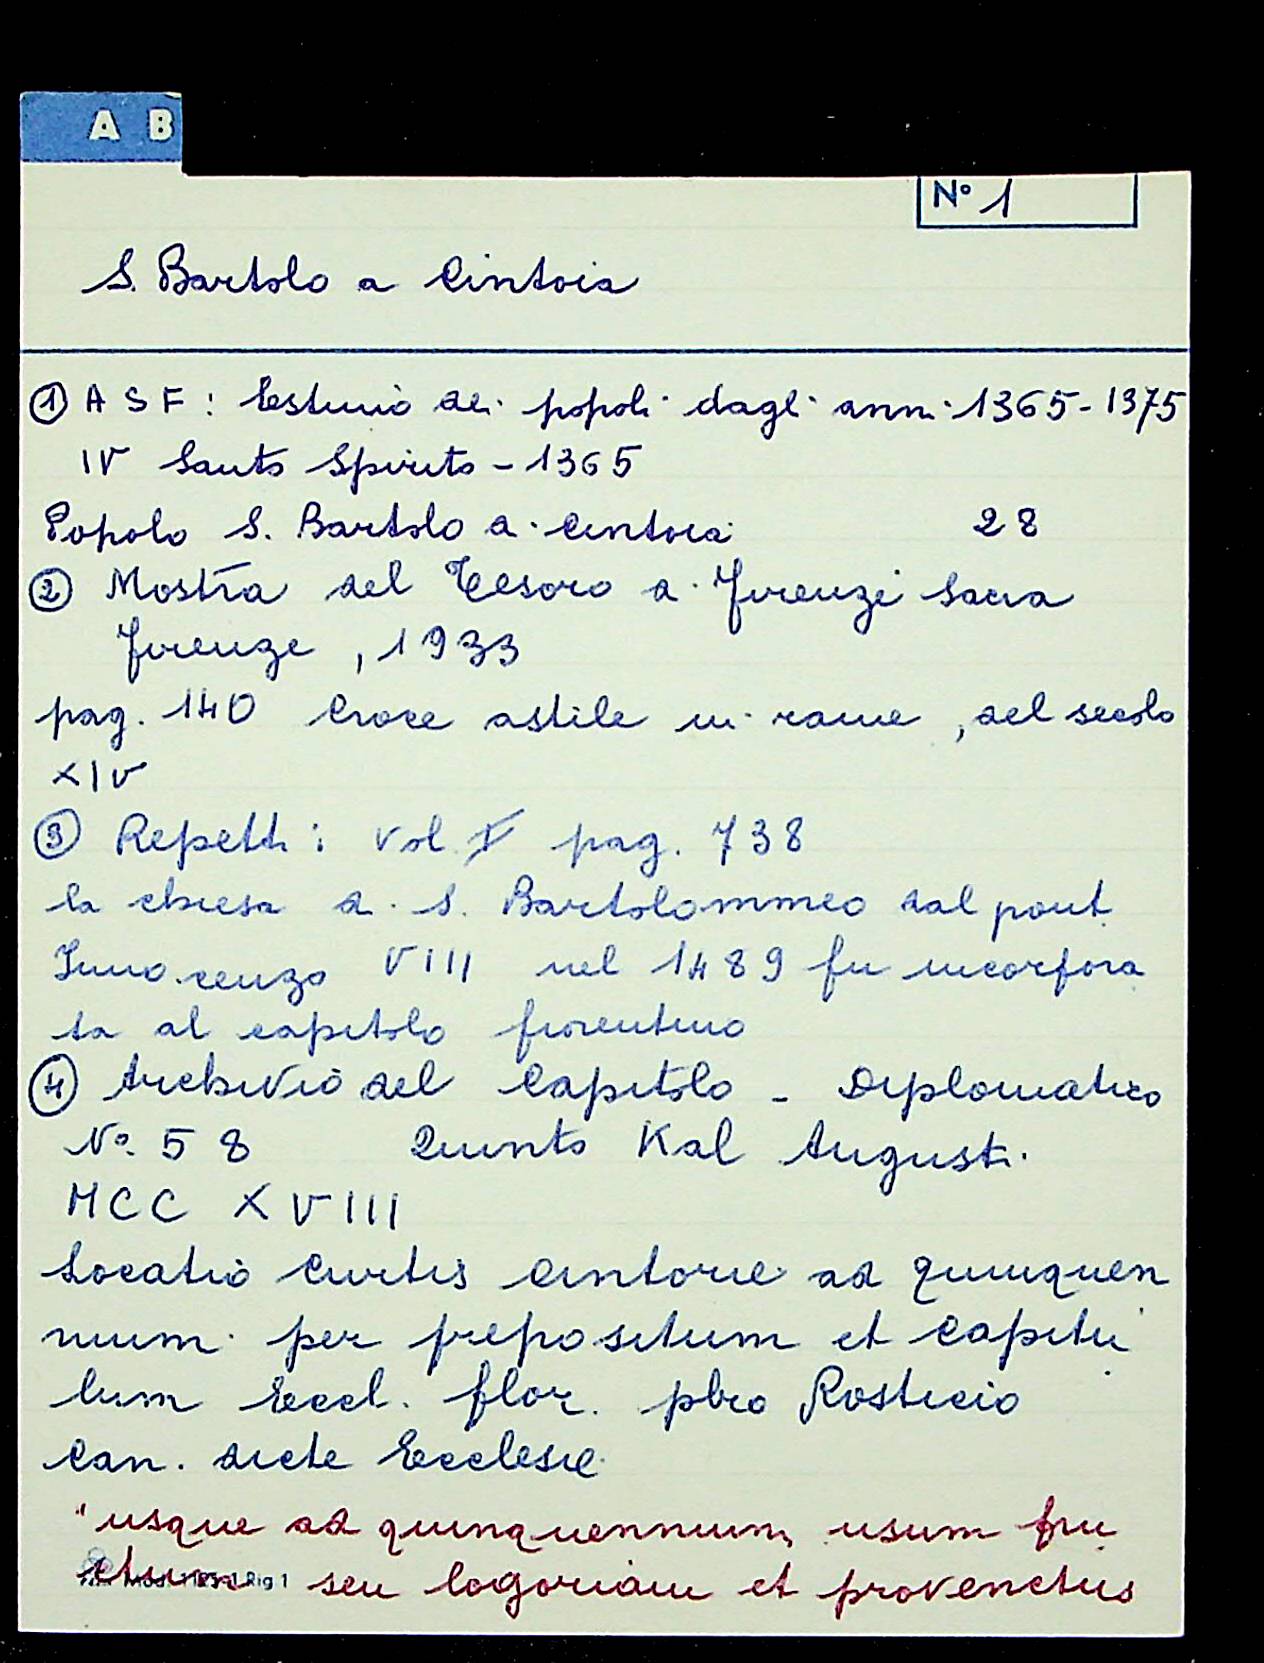 A B
Nº 1
S. Bartolo a Cintoia
① A S F : Estimio dei popoli dagli anni 1365-1375
IV Santo Spirito - 1365
Popolo S. Bartolo a Cintoia 28
② Mostra del Tesoro di Firenze Sacra
Firenze, 1933
pag. 140 Croce astile in rame, del secolo
XIV
③ Repetti: vol V pag. 738
la chiesa di S. Bartolommeo dal pont.
Innocenzo VIII nel 1489 fu incorpora
ta al capitolo fiorentino
④ Archivio del Capitolo - Diplomatico
Nº 58 Quinto Kal Augusti
MCC XVIII
Locatio Curtis Cintorie ad quinquen
nium per prepositum et capitu
lum Eccl. flor. pbro Rosticio
Can. dicte Ecclesie
"usque ad quinquennium, usum fru
ctum seu logoriam et provenctus